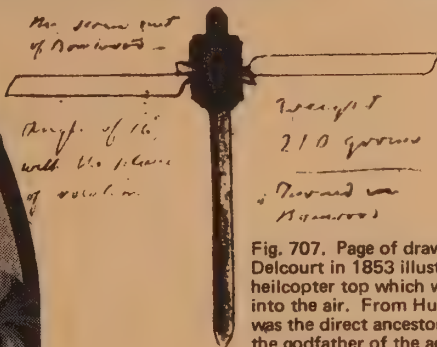 of
Angle of
with the plane
of rotation
Weight
210 grains
Fig. 707. Page of draw
Delcourt in 1853 illust
heilcopter top which w
into the air. From Hu
was the direct ancestor
the godfather of the ae